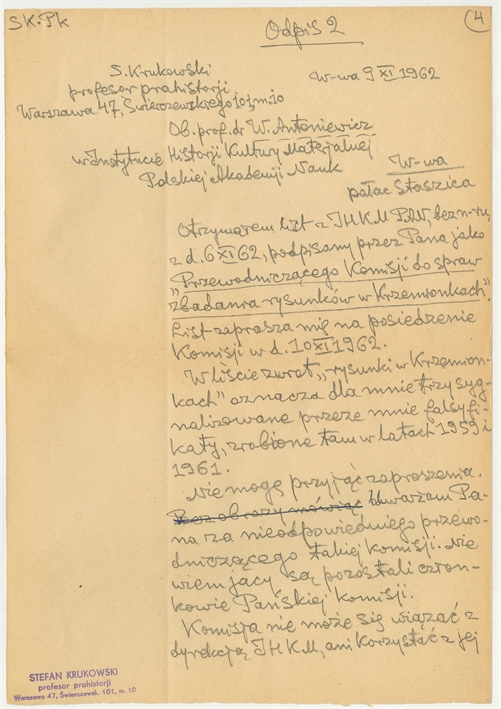 SK.Pk
Odpis 2
4
S. Krukowski
profesor prahistorji
Warszawa 47, Świerczewskiego 101, m. 10
W-wa 9 XI 1962
Ob. prof. dr W. Antoniewicz
w Instytucie Historji Kultury Materjalnej
Polskiej Akademji Nauk
W-wa
pałac Staszica
Otrzymałem list z IHKM PAN, bez n-ru,
z d. 6 XI 62, podpisany przez Pana jako
„Przewodniczącego Komisji do spraw
zbadania rysunków w Krzemionkach".
List zaprasza mię na posiedzenie
Komisji w d. 10 XI 1962.
W liście zwrot „rysunki w Krzemion-
kach" oznacza dla mnie trzy syg-
nalizowane przeze mnie falsyfi-
katy, zrobione tam w latach 1959 i
1961.
Nie mogę przyjąć zaproszenia.
Bez obrazy mówiąc Uważam Pa-
na za nieodpowiedniego przewo-
dniczącego takiej komisji. Nie
wiem jacy są pozostali człon-
kowie Pańskiej komisji.
Komisja nie może się wiązać z
dyrekcją IHKM, ani korzystać z jej
STEFAN KRUKOWSKI
profesor prahistorji
Warszawa 47, Świerczewsk. 101, m. 10